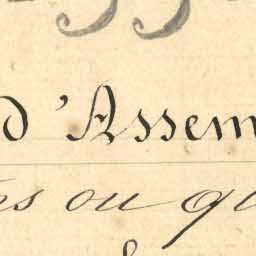 d'Assem
es ou qu